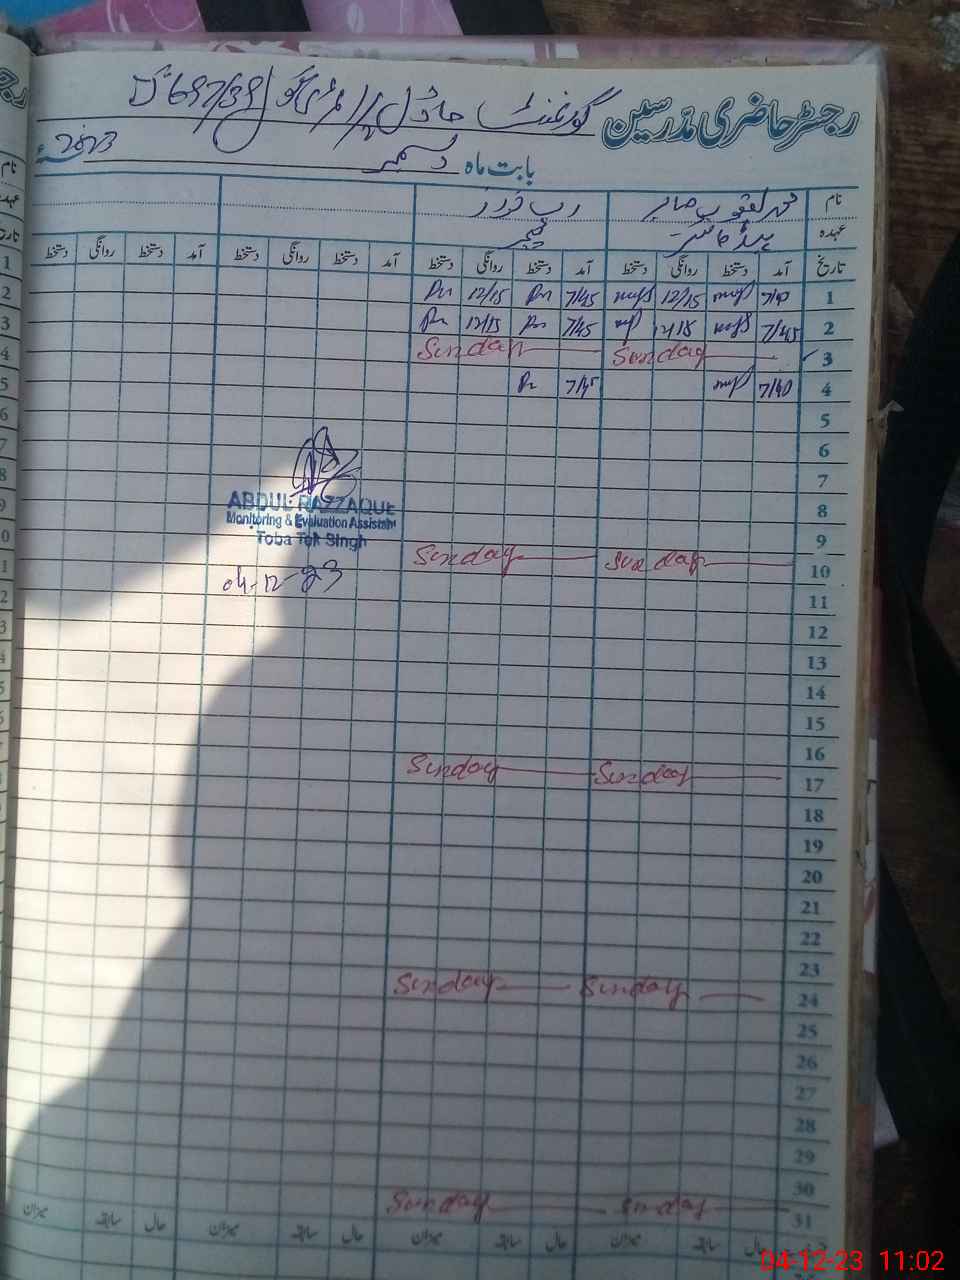 رجسٹر حاضری مدرسین گورنمنٹ ماڈل پرائمری سکول 697/39 گ ب
بابت ماہ دسمبر 2023ء
نام محمد یعقوب صابر رب نواز
عہدہ ہیڈ ماسٹر ٹیچر
تاریخ آمد دستخط روانگی دستخط آمد دستخط روانگی دستخط آمد دستخط روانگی دستخط آمد دستخط روانگی دستخط
1 7/40 12/15 7/45 12/15
2 7/45 12/15 7/45 12/15
3 Sunday Sunday
4 7/40 7/45
5
6
7
8
ABDUL RAZZAQUE
Monitoring & Evaluation Assistant
Toba Tek Singh
9
10 Sunday Sunday
04-12-23
11
12
13
14
15
16
17 Sunday Sunday
18
19
20
21
22
23
24 Sunday Sunday
25
26
27
28
29
30
31 Sunday Sunday
حال سابقہ میزان حال سابقہ میزان حال سابقہ میزان حال سابقہ میزان
04-12-23 11:02